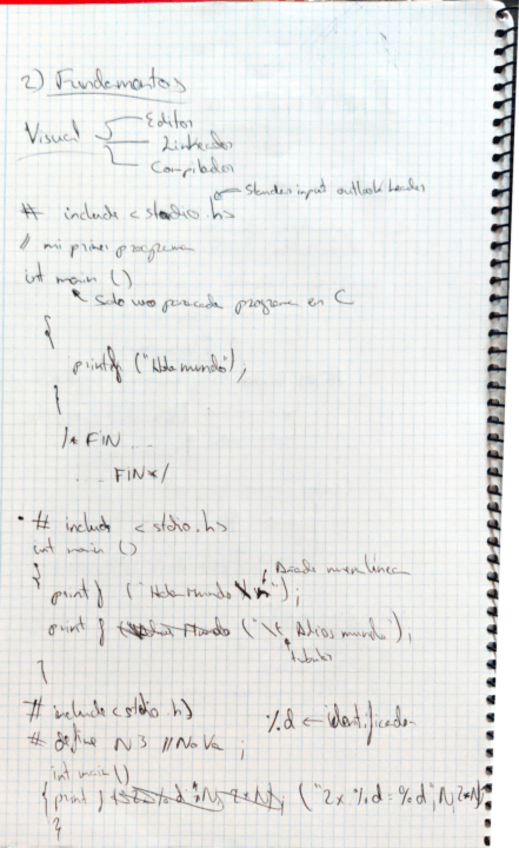 2) Fundamentos
Visual
Editor
Linkeador
Compilador
Standar input outlook header
# include <stdio.h>
// mi primer programa
int main ()
Solo uno para cada programa en C
{
printf ("Hola mundo");
}
/* FIN ...
... FIN*/
# include <stdio.h>
int main ()
{
Añade nueva línea
printf ("Hola Mundo \n");
printf ("\t Adios mundo");
tabular
}
# include <stdio.h>
%d ← identificador
# define N 3 // No Va ;
int main ()
{ printf ("2x %d = %d", N, 2*N)
}